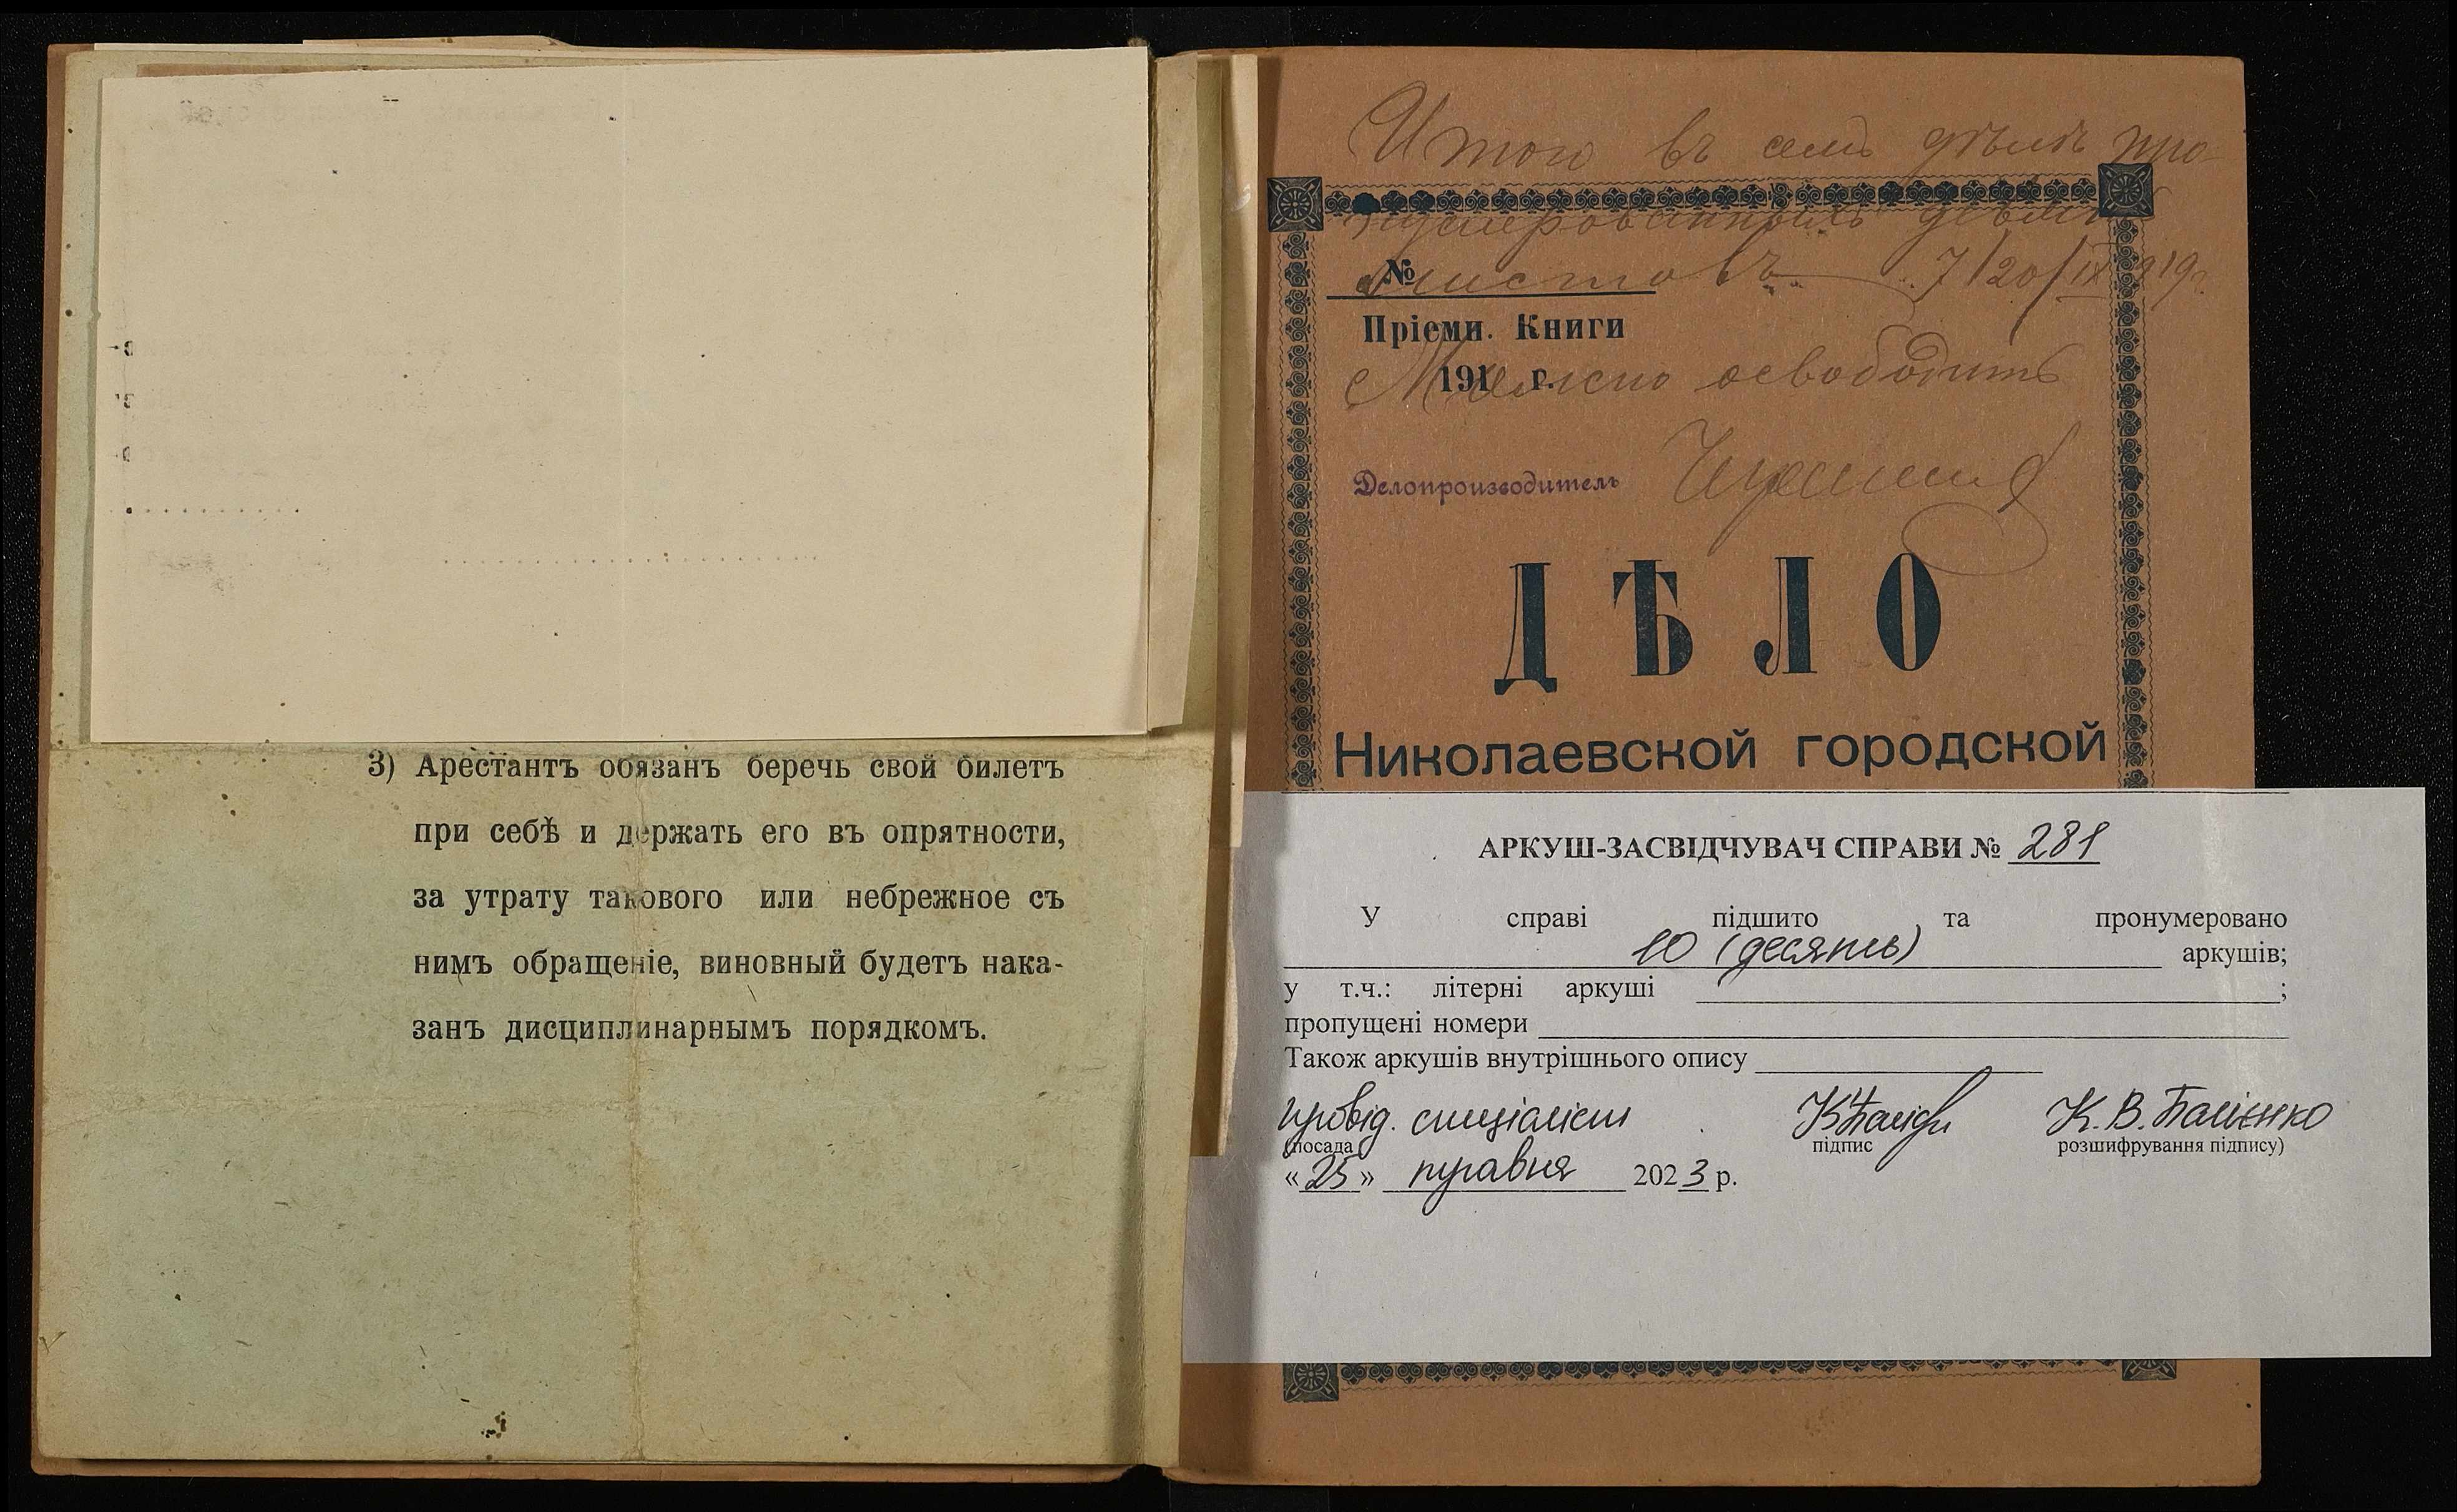 3) Арестантъ обязанъ беречь свой билетъ
при себѣ и держать его въ опрятности,
за утрату такового или небрежное съ
нимъ обращеніе, виновный будетъ нака-
занъ дисциплинарнымъ порядкомъ.
Итого въ семъ дѣлѣ про-
нумерованныхъ
листовъ 7/20/IX 919г.
№
Пріемн. Книги
191 г.
Можно освободить
Делопроизводитель
ДѢЛО
Николаевской городской
АРКУШ-ЗАСВІДЧУВАЧ СПРАВИ № 281
У справі підшито та пронумеровано
10 (десять) аркушів;
у т.ч.: літерні аркуші ;
пропущені номери
Також аркушів внутрішнього опису
провід. спеціаліст К. В. Балієнко
(посада підпис розшифрування підпису)
«25» травня 2023 р.